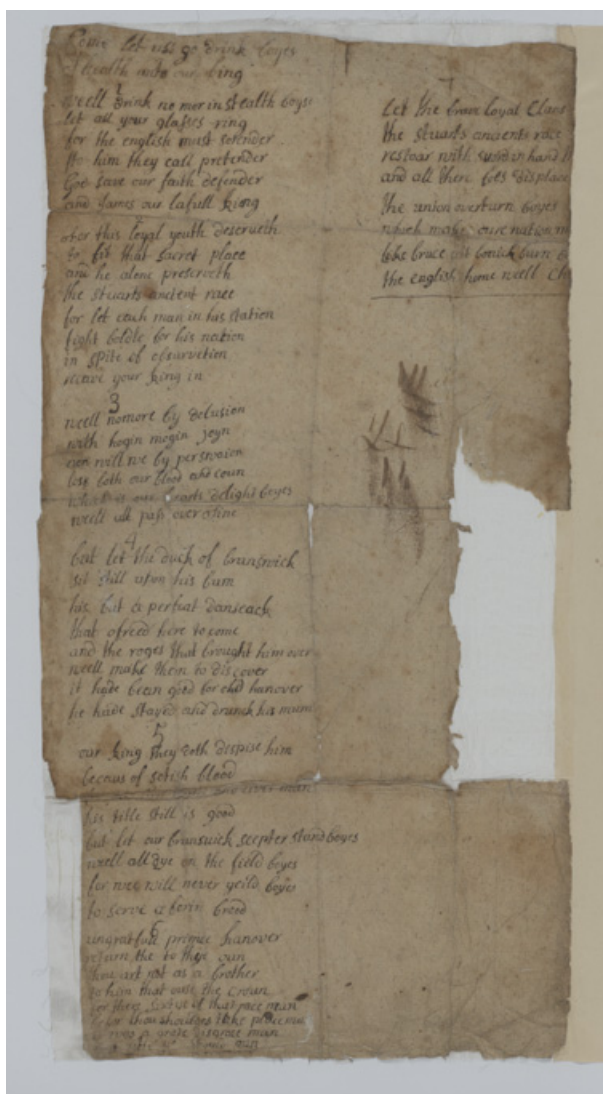 Come let us go drink boyes
A health unto our king
1
weell drink no mor in stealth boyse
let all your glasses ring
for the english must sorender
to him they call pretender
God save our faith defender
and James our lafull king
this loyal youth deserveth
to fit that sacret place
and he alone preserveth
the stuarts ancient race
for let each man in his station
fight boldle for his nation
in spite of
receve your king in
3
weell nomore by delusion
with hogin mogin joyn
nor will we by
lose both our blood and coun
what is our hearts delight boyes
weell all pass over
4
but let the duck of brunswick
sit still upon his bum
his but a perfeat
that ofreed here to come
and the roges that brought him over
weell make them to discover
it hade been good for old hanover
he hade stayed and drunck his mum
5
our king they doth dispise him
becaus of sotish blood
his title still is good
but let our brunswick scepter stand boyes
weell all dye on the field boyes
for wee will never yeild boyes
to serve a breed
6
ungratfull prince hanover
return the to thy oun
thou art not as a brother
to him that ows the croun
of that race man
thou shouldest take place man
was a great disgrace man
7
Let the brave loyal Clans
the stuarts ancients race
restoar with sword in hand
and all there foes displace
the union overturn boyes
which makes oure nation
like bruce at burn
the english home weell